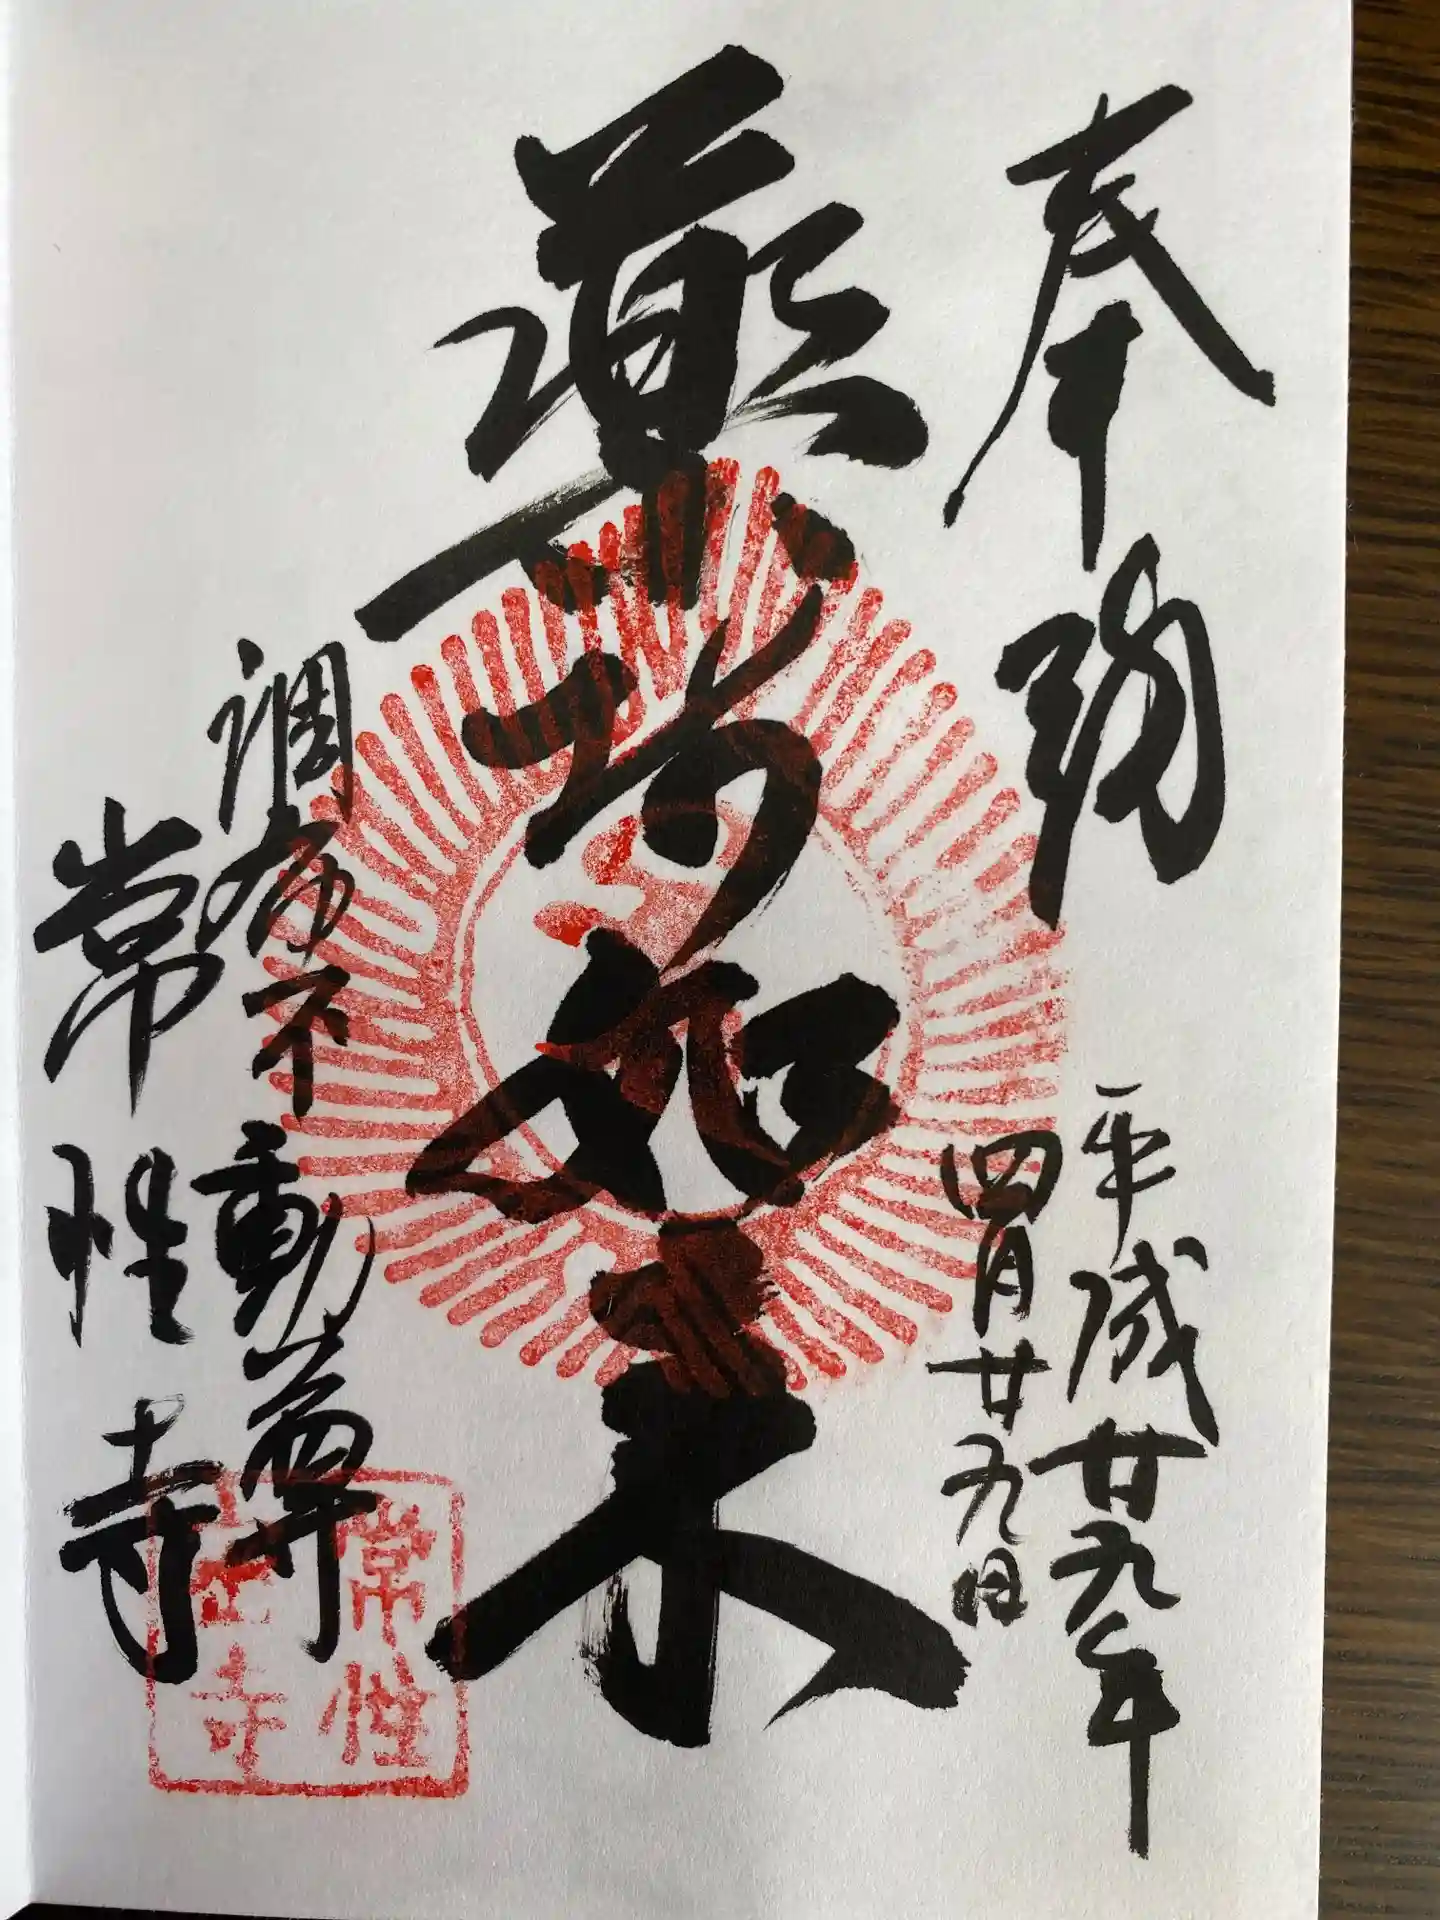 奉拜
平成廿九年
四月廿九日
薬師如来
調布不動尊
常性寺
常性
寺